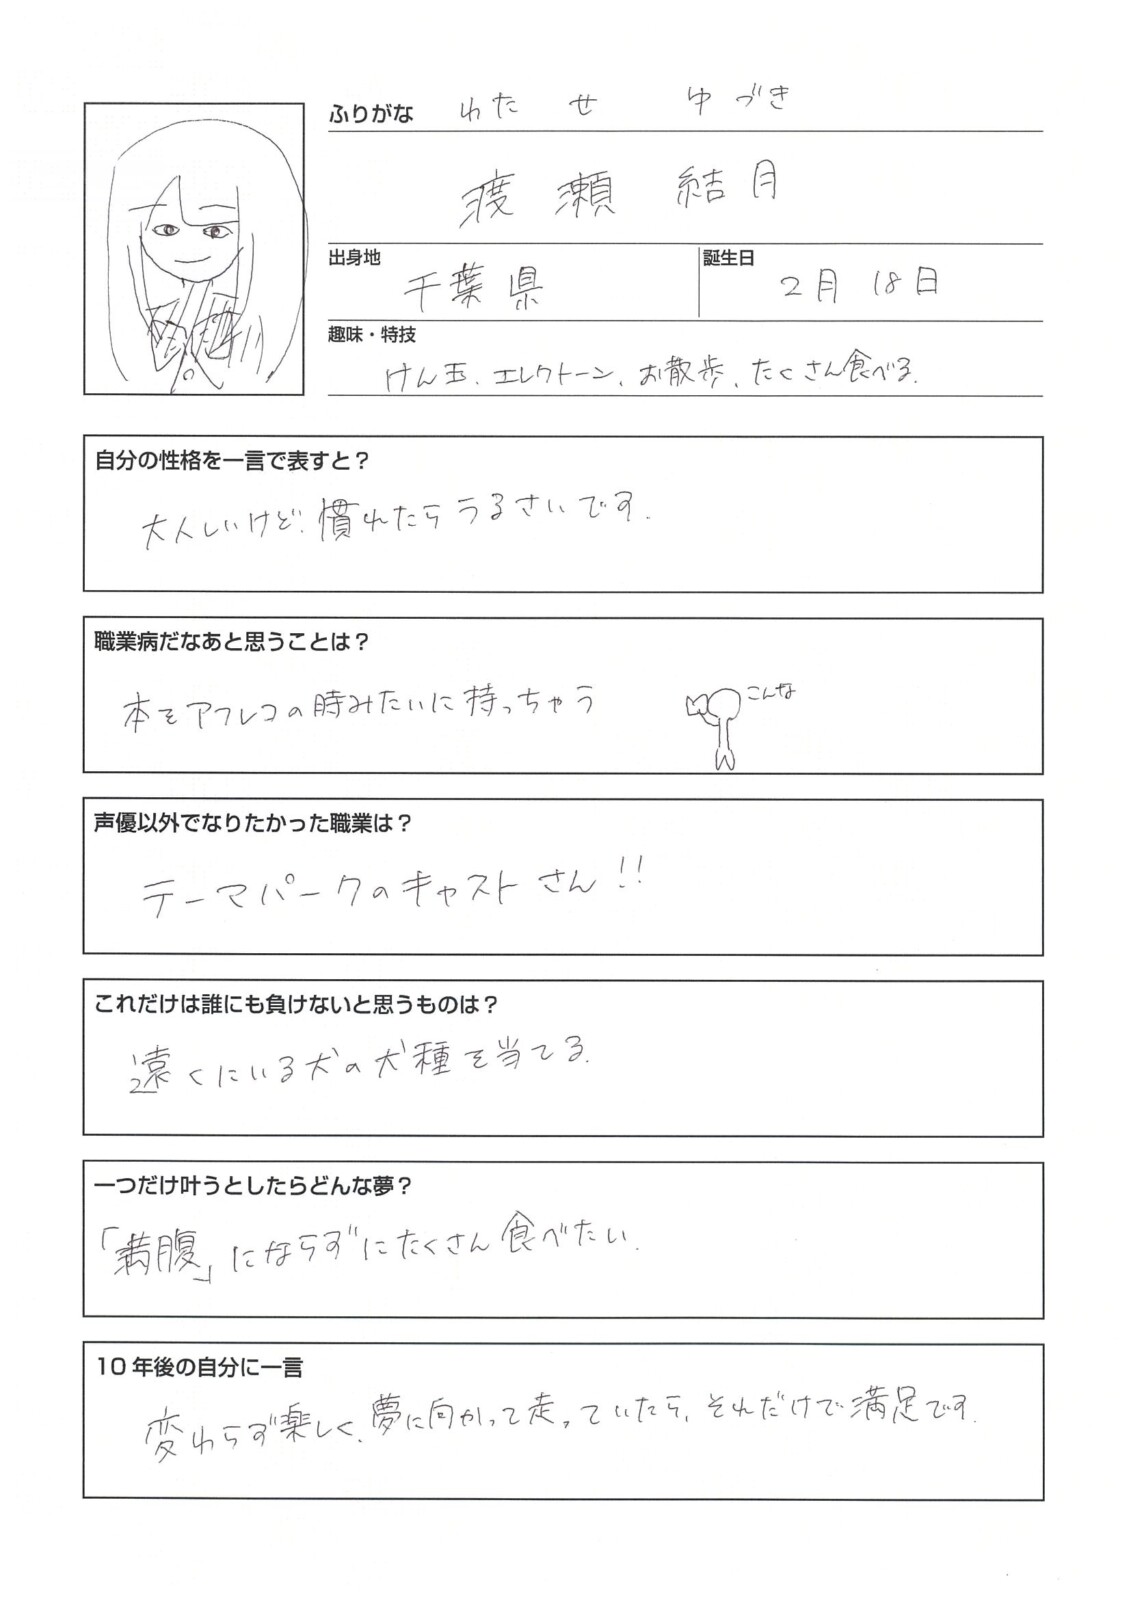 ふりがな わたせ ゆづき
渡瀬 結月
出身地 千葉県 誕生日 2月18日
趣味・特技
けん玉、エレクトーン、お散歩、たくさん食べる。
自分の性格を一言で表すと？
大人しいけど、慣れたらうるさいです。
職業病だなあと思うことは？
本をアフレコの時みたいに持っちゃう こんな
声優以外でなりたかった職業は？
テーマパークのキャストさん!!
これだけは誰にも負けないと思うものは？
遠くにいる犬の犬種を当てる。
一つだけ叶うとしたらどんな夢？
「満腹」にならずにたくさん食べたい。
10年後の自分に一言
変わらず楽しく、夢に向かって走っていたら、それだけで満足です。